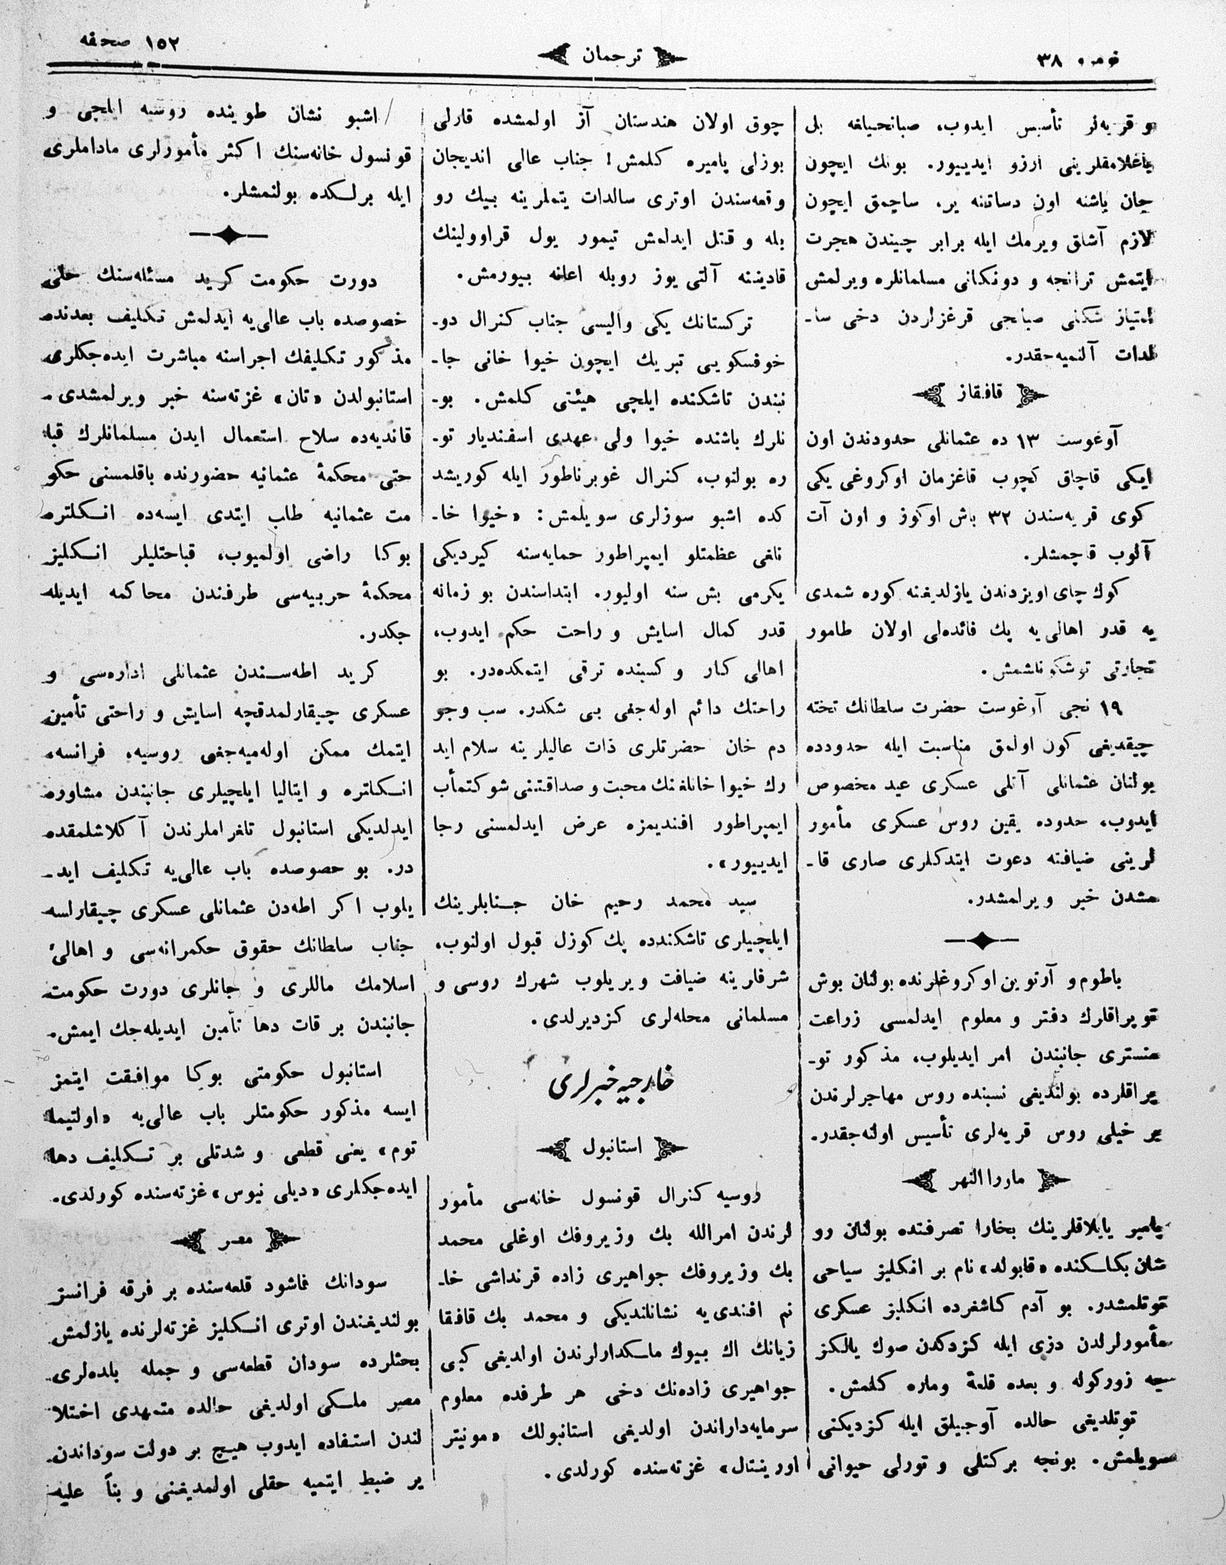 نومرو ٣٨
ترجمان
١٥٢ صحفه
و قریه‌لر تأسیس ایدوب، صبانجیلغه بل
باغلامقلرینی آرزو ایدییور. بونك ایچون
جان باشنه اون دساتنه یر، ساچمق ایچون
لازم آشلق ویرمك ایله برابر چیندن هجرت
ایتمش ترانجه و دونكانی مسلمانلره ویرلمش
امتیاز شكلی صبانجی قرغزلردن دخی سا-
لدات آلنمیه‌جقدر.
قافقاز
آوغوست ١٣ ده عثمانلی حدودندن اون
ایكی قاچاق كچوب قاغزمان اوكروغی یكی
كوی قریه‌سندن ٣٢ باش اوكوز و اون آت
آلوب قاچمشلر.
كوك چای اویزدندن یازلدیغنه كوره شمدی
یه قدر اهالی‌یه پك فائده‌لی اولان طامور
تجارتی توشكونلشمش.
١٩ نجی آوغوست حضرت سلطانك تخته
چیقدیغی كون اولمق مناسبت ایله حدودده
بولنان عثمانلی آتلی عسكری عید مخصوص
ایدوب، حدوده یقین روس عسكری مأمور
لرینی ضیافته دعوت ایتدكلری صاری قا-
مشدن خبر ویرلمشدر.
باطوم و آرتوین اوكروغلرنده بولنان بوش
توپراقلرك دفتر و معلوم ایدلمسی زراعت
منستری جانبندن امر ایدیلوب، مذكور تو-
پراقلرده بولندیغی نسبنده روس مهاجرلرندن
بر خیلی روس قریه‌لری تأسیس اولنه‌جقدر.
ماورا النهر
پامیر یایلاقلرینك بخارا تصرفنده بولنان رو
شان بكلكنده «قابولد» نام بر انكلیز سیاحی
توتلمشدر. بو آدم كاشغرده انكلیز عسكری
مأمورلرلدن دزی ایله كزدكدن صوك یالكز
سیه زوركوله و بعده قلعهٔ وماره كلمش.
توتلدیغی حالده آوجیلق ایله كزدیكنی
سویلمش. بونجه بركتلی و تورلی حیوانی
چوق اولان هندستان آز اولمشده قارلی
بوزلی پامیره كلمش! جناب عالی اندیجان
وقعه‌سندن اوتری سالدات یتملرینه بیك رو
بله و قتل ایدلمش تیمور یول قراوولینك
قادیننه آلتی یوز روبله اعانه بیورمش.
تركستانك یكی والیسی جناب كنرال دو-
خوفسكویی تبریك ایچون خیوا خانی جا-
نبندن تاشكنده ایلچی هیئتی كلمش. بو-
نلرك باشنده خیوا ولی عهدی اسفندیار تو-
ره بولنوب، كنرال غوبرناطور ایله كوریشد
كده اشبو سوزلری سویلمش: «خیوا خا-
نلغی عظمتلو ایمپراطور حمایه‌سنه كیردیكی
یكرمی بش سنه اولیور. ابتداسندن بو زمانه
قدر كمال اسایش و راحت حكم ایدوب،
اهالی كار و كسبنده ترقی ایتمكده‌در. بو
راحتك دائم اوله‌جغی بی شكدر. سب وجو
دم خان حضرتلری ذات عالیلرینه سلام اید
رك خیوا خانلغنك محبت و صداقتنی شوكتمأب
ایمپراطور افندیمزه عرض ایدلمسنی رجا
ایدییور».
سید محمد رحیم خان جنابلرینك
ایلچیلری تاشكندده پك كوزل قبول اولنوب،
شرفلرینه ضیافت ویریلوب شهرك روسی و
مسلمانی محله‌لری كزدیرلدی.
خارجیه خبرلری
استانبول
روسیه كنرال قونسول خانه‌سی مأمور
لرندن امرالله بك وزیروفك اوغلی محمد
بك وزیروفك جواهیری زاده قرنداشی خا-
نم افندی‌یه نشانلندیكی و محمد بك قافقا
زیانك اك بیوك ملكدارلرندن اولدیغی كبی
جواهیری زاده‌نك دخی هر طرفده معلوم
سرمایه‌داراندن اولدیغی استانبولك «مونیتر
اورینتال» غزته‌سنده كورلدی.
اشبو نشان طوینده روسیه ایلچی و
قونسول خانه‌سنك اكثر مأمورلری ماداملری
ایله برلكده بولنمشلر.
دورت حكومت كرید مسئله‌سنك حلی
خصوصده باب عالی‌یه ایدلمش تكلیف بعدنده
مذكور تكلیفك اجراسنه مباشرت ایده‌جكلری
استانبولدن «تان» غزته‌سنه خبر ویرلمشدی.
قاندیه‌ده سلاح استعمال ایدن مسلمانلرك قبا
حتی محكمهٔ عثمانیه حضورنده باقلمسنی حكو
مت عثمانیه طلب ایتدی ایسه‌ده انكلتره
بوكا راضی اولمیوب، قباحتلیلر انكلیز
محكمهٔ حربیه‌سی طرفندن محاكمه ایدیله
جكدر.
كرید اطه‌سندن عثمانلی اداره‌سی و
عسكری چیقارلمدقچه اسایش و راحتی تأمین
ایتمك ممكن اوله‌میه‌جغی روسیه، فرانسه،
انكلتره و ایتالیا ایلچیلری جانبندن مشاوره
ایدلدیكی استانبول تلغراملرندن آكلاشلمقده
در. بو حصوصده باب عالی‌یه تكلیف اید-
یلوب اكر اطه‌دن عثمانلی عسكری چیقارلسه
جناب سلطانك حقوق حكمرانه‌سی و اهالئ
اسلامك ماللری و جانلری دورت حكومت
جانبندن بر قات دها تأمین ایدیله‌جك ایمش.
استانبول حكومتی بوكا موافقت ایتمز
ایسه مذكور حكومتلر باب عالی‌یه «اولتیما
توم» یعنی قطعی و شدتلی بر تكلیف دها
ایده‌جكلری «دیلی نیوس» غزته‌سنده كورلدی.
مصر
سودانك فاشود قلعه‌سنده بر فرقه فرانسز
بولندیغندن اوتری انكلیز غزته‌لرنده یازلمش
بحثلرده سودان قطعه‌سی و جمله بلده‌لری
مصر ملكی اولدیغی حالده متمهدی اختلا
لندن استفاده ایدوب هیچ بر دولت سوداندن
یر ضبط ایتمیه حقلی اولمدیغنی و بنأ علیه